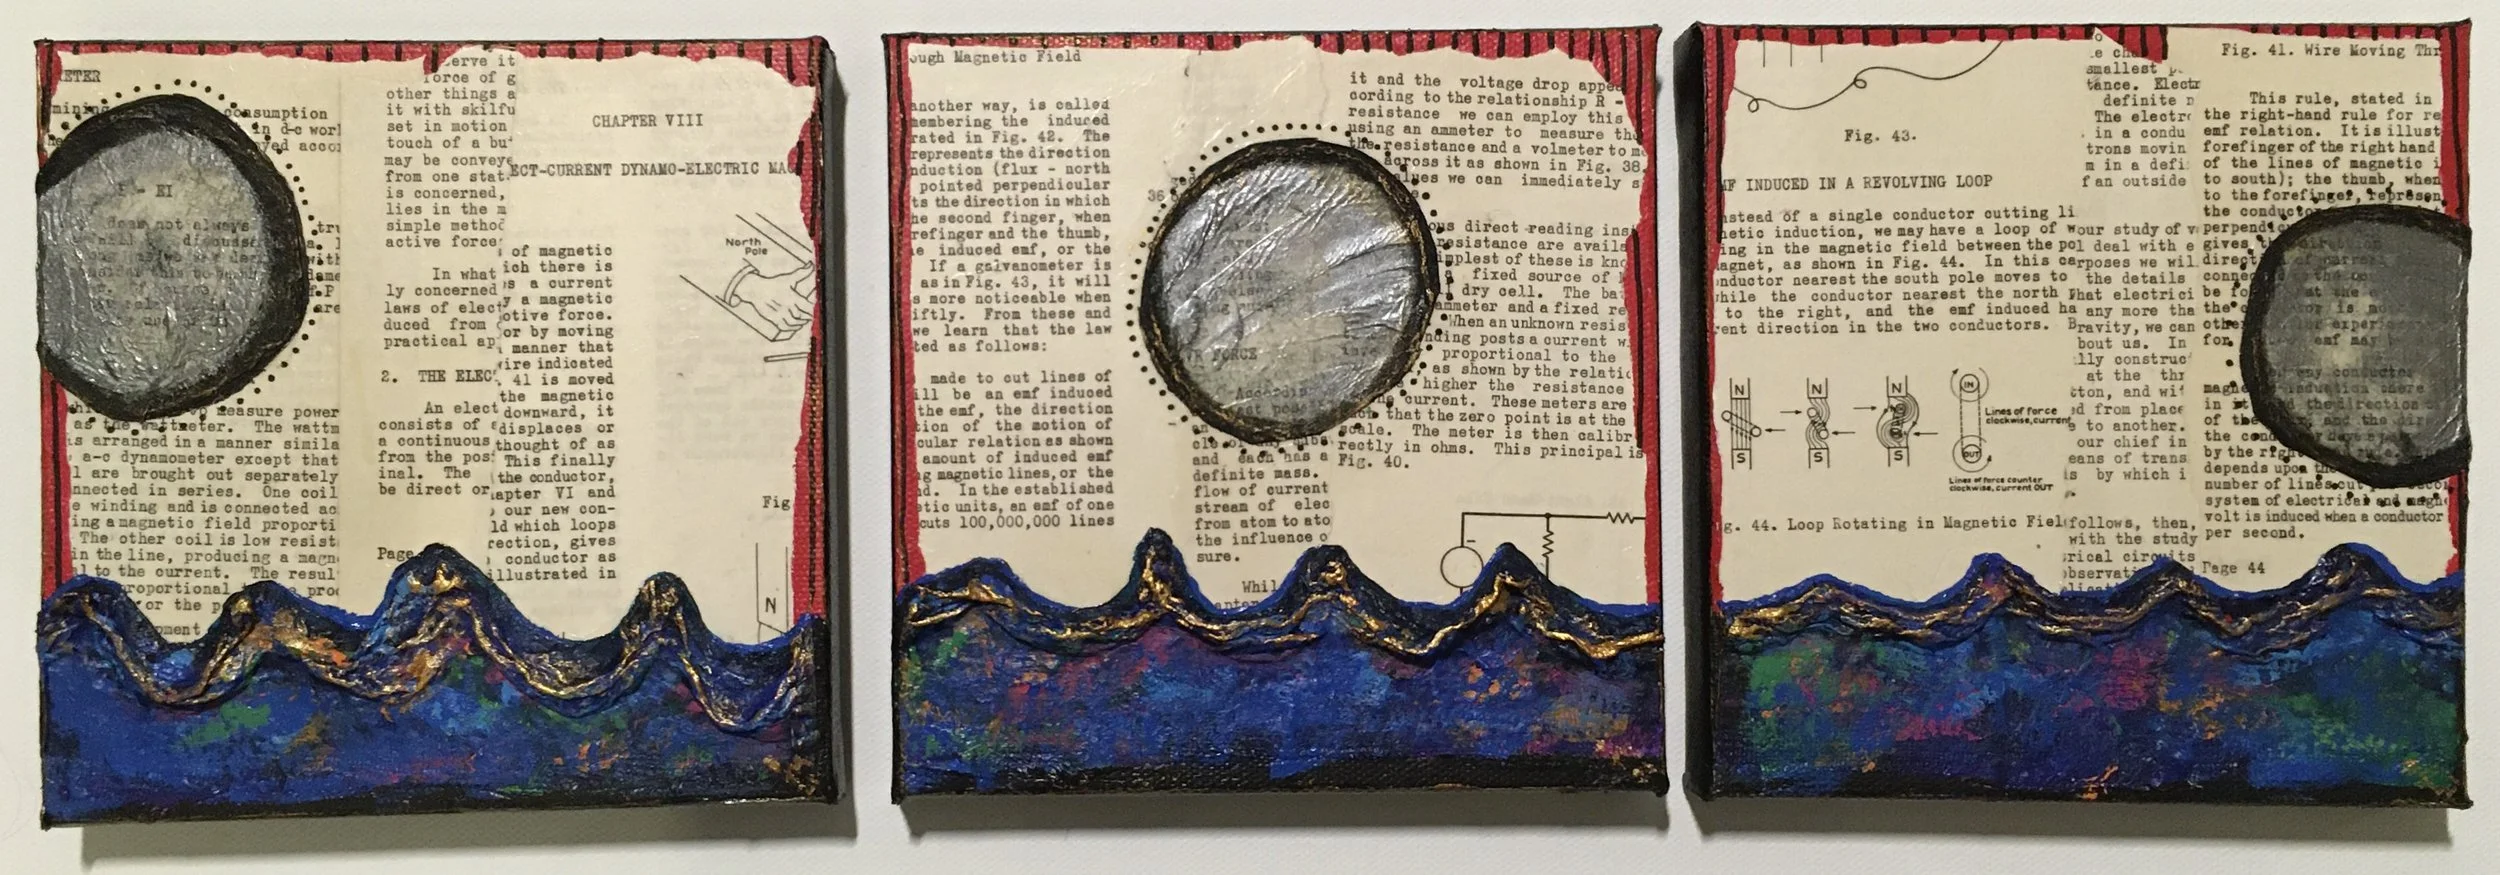 METER
consumption
in d-c
E - EI
does not always
to measure power
as the wattmeter. The wattm
is arranged in a manner simila
a-c dynamometer except that
l are brought out separately
nnected in series. One coil
e winding and is connected ac
ing a magnetic field proporti
The other coil is low resist
in the line, producing a magn
l to the current. The resul
proportional
or the p
serve it
force of g
other things a
it with skilfu
set in motion
touch of a bu
may be conveye
from one stat
is concerned,
lies in the m
simple method
active force
In what
ly concerned
laws of elect
duced from
practical ap
2. THE ELEC
An elect
consists of
a continuous
from the pos
inal. The
be direct or
Page
CHAPTER VIII
ECT-CURRENT DYNAMO-ELECTRIC MAC
North
Pole
of magnetic
ich there is
s a current
y a magnetic
otive force.
or by moving
manner that
wire indicated
41 is moved
the magnetic
downward, it
displaces or
thought of as
This finally
the conductor,
apter VI and
our new con-
ld which loops
rection, gives
conductor as
illustrated in
Fig
N
ough Magnetic Field
another way, is called
membering the induced
rated in Fig. 42. The
represents the direction
nduction (flux - north
pointed perpendicular
ts the direction in which
he second finger, when
refinger and the thumb,
e induced emf, or the
If a galvanometer is
as in Fig. 43, it will
s more noticeable when
iftly. From these and
we learn that the law
ted as follows:
made to cut lines of
ill be an emf induced
the emf, the direction
tion of the motion of
cular relation as shown
amount of induced emf
g magnetic lines, or the
nd. In the established
etic units, an emf of one
cuts 100,000,000 lines
36
FORCE
and each has a
definite mass.
flow of current
stream of elec
from atom to ato
the influence o
sure.
Whil
it and the voltage drop appea
cording to the relationship R -
resistance we can employ this
using an ammeter to measure th
the resistance and a volmeter to m
across it as shown in Fig. 38.
alues we can immediately s
ous direct reading ins
resistance are availa
implest of these is kno
a fixed source of
dry cell. The ba
ammeter and a fixed re
When an unknown resis
nding posts a current w
proportional to the
, as shown by the relati
higher the resistance
the current. These meters are
that the zero point is at the
scale. The meter is then calibr
rectly in ohms. This principal is
Fig. 40.
Fig. 43.
MF INDUCED IN A REVOLVING LOOP
nstead of a single conductor cutting li
netic induction, we may have a loop of w
ing in the magnetic field between the pol
agnet, as shown in Fig. 44. In this ca
nductor nearest the south pole moves to
hile the conductor nearest the north P
to the right, and the emf induced ha
rent direction in the two conductors. B
N N N IN
Lines of force
clockwise, current
S S S OUT
Lines of force counter
clockwise, current OUT
g. 44. Loop Rotating in Magnetic Fiel
smallest
tance. Elect
definite
The electr
in a condu
trons movin
m in a defi
f an outside
our study of
deal with e
rposes we wil
the details
hat electrici
any more tha
ravity, we can
bout us. In
lly construc
at the thr
tton, and wi
ed from place
e to another.
our chief in
eans of trans
s by which i
follows, then,
with the study
rical circuits
observati
Fig. 41. Wire Moving Thr
This rule, stated in
the right-hand rule for re
emf relation. It is illust
forefinger of the right hand
of the lines of magnetic i
to south); the thumb, when
to the forefinger, represen
the conductor
perpendic
gives
directi
connec
be fo
the
other
for
any conductor
magne
in it
of the
the cond
by the right
depends upon the
number of lines cut
system of electrical and magn
volt is induced when a conductor
per second.
Page 44